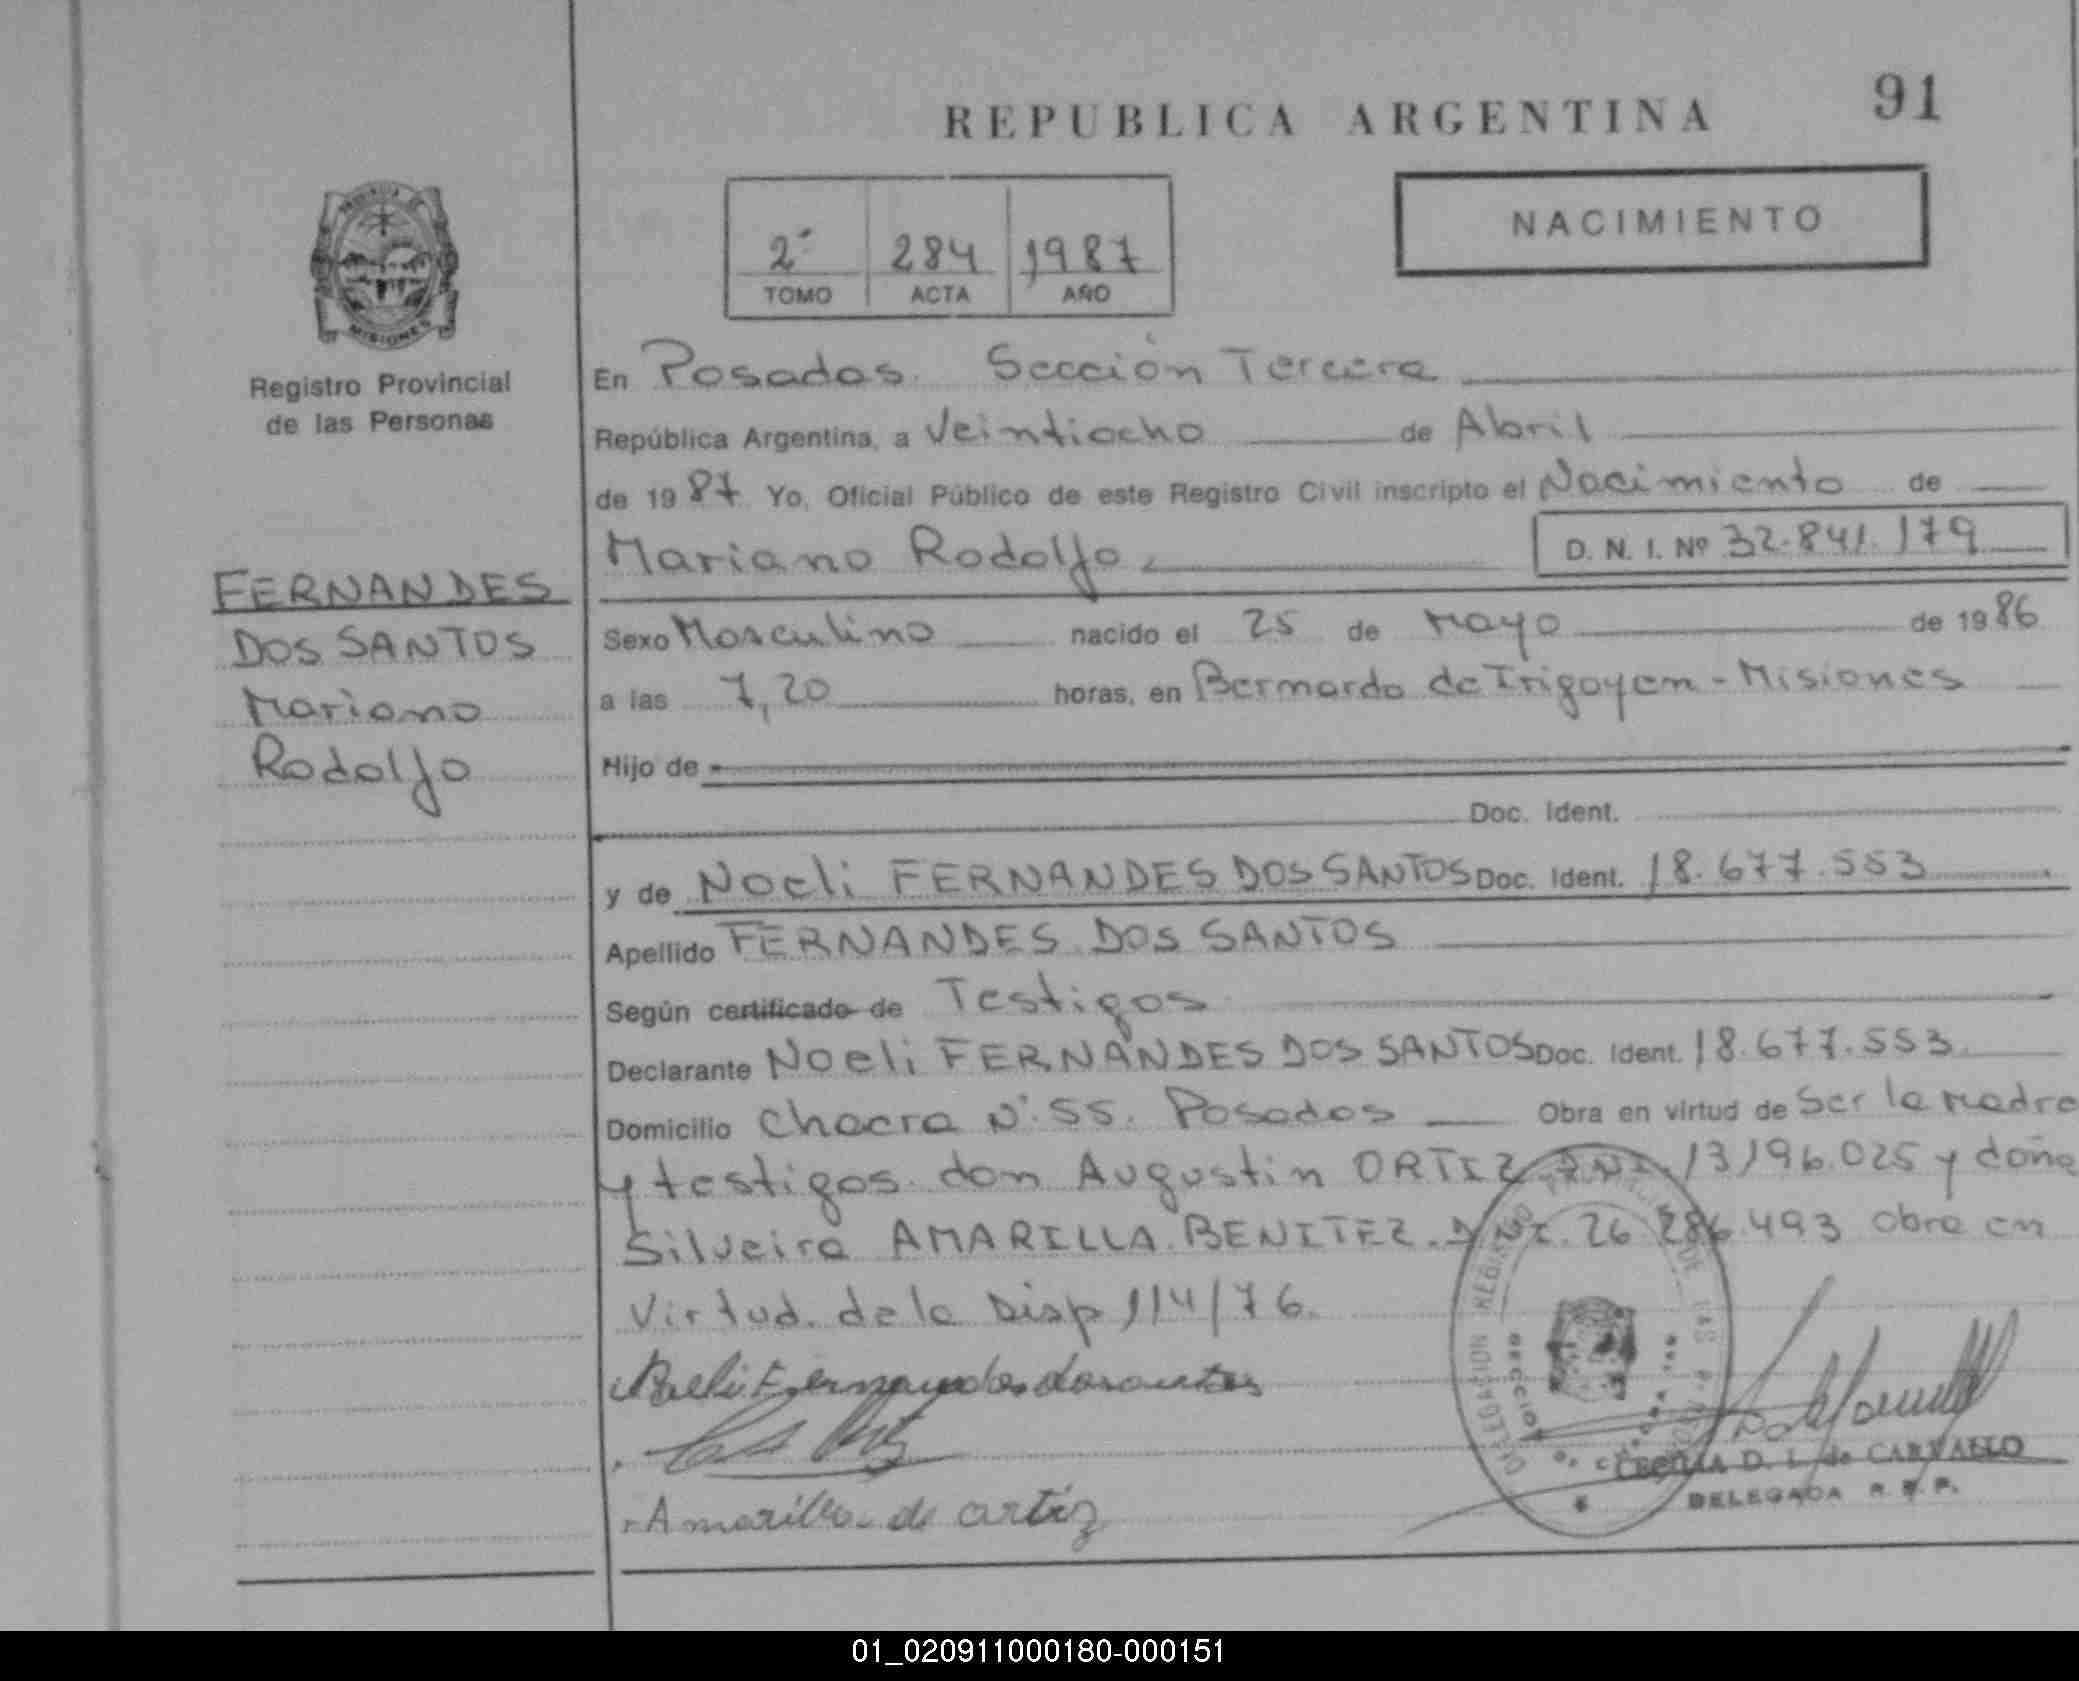 REPUBLICA ARGENTINA 91
NACIMIENTO
2º 284 1987
TOMO ACTA AÑO
PROVINCIA DE
MISIONES
Registro Provincial
de las Personas
FERNANDES
DOS SANTOS
Mariano
Rodolfo
En Posadas. Sección Tercera
República Argentina, a Veintiocho de Abril
de 1987. Yo, Oficial Público de este Registro Civil inscripto el Nacimiento de
Mariano Rodolfo. D. N. I. Nº 32.841.179
Sexo Masculino nacido el 25 de Mayo de 1986
a las 7,20 horas, en Bernardo de Irigoyen - Misiones
Hijo de
Doc. Ident.
y de Noeli FERNANDES DOS SANTOS Doc. Ident. 18.677.553
Apellido FERNANDES DOS SANTOS
Según certificado de Testigos
Declarante Noeli FERNANDES DOS SANTOS Doc. Ident. 18.677.553
Domicilio Chacra Nº 55. Posadas Obra en virtud de Ser la Madre
y testigos. don Augustin ORTIZ DNI. 13196.025 y doña
Silveira AMARILLA BENITEZ. DNI. 26.286.493 obra en
Virtud. de la Disp 114/76.
Noeli Fernandes dos santos
Amarilla de artiz
DELEGACION REGISTRO PROVINCIAL DE LAS
SECCION
CECILIA D. L. de CARVALLO
DELEGADA R. P. P.
01_020911000180-000151